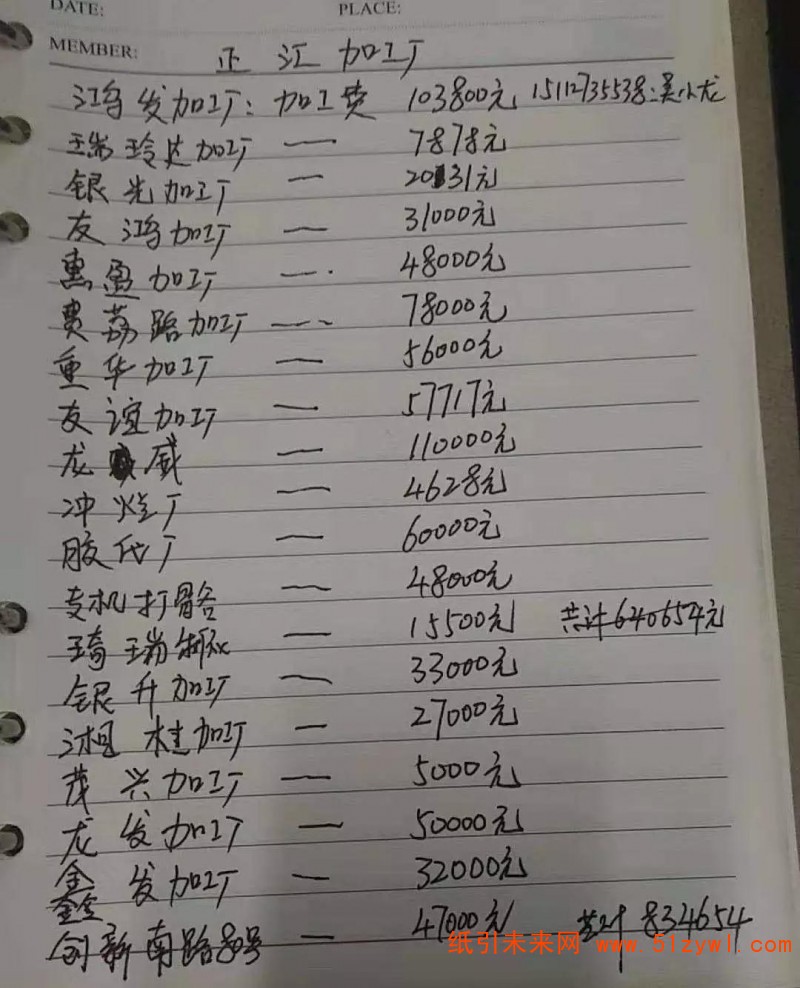 DATE: PLACE:
MEMBER: 正江加工厂
鸿发加工厂:加工费 103800元 15112735538:吴小龙
瑞玲达加工厂 — 7878元
银光加工厂 — 20131元
友鸿加工厂 — 31000元
惠盈加工厂 — 48000元
贵荔路加工厂 — 78000元
重华加工厂 — 56000元
友谊加工厂 — 57717元
龙威 — 110000元
冲烧厂 — 4628元
胶代厂 — 60000元
专机打骨各 — 48000元
琦瑞制衣 — 15500元 共计640654元
银升加工厂 — 33000元
湘桂加工厂 — 27000元
茂兴加工厂 — 5000元
龙发加工厂 — 50000元
鑫发加工厂 — 32000元
创新南路80号 47000元 共计834654
纸引未来网 www.51zywl.com